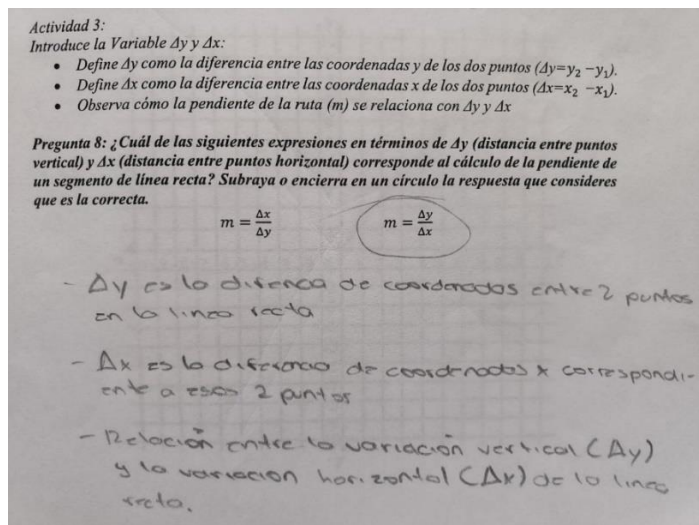 Actividad 3:
Introduce la Variable Δy y Δx:
• Define Δy como la diferencia entre las coordenadas y de los dos puntos (Δy=y₂ −y₁).
• Define Δx como la diferencia entre las coordenadas x de los dos puntos (Δx=x₂ −x₁).
• Observa cómo la pendiente de la ruta (m) se relaciona con Δy y Δx
Pregunta 8: ¿Cuál de las siguientes expresiones en términos de Δy (distancia entre puntos
vertical) y Δx (distancia entre puntos horizontal) corresponde al cálculo de la pendiente de
un segmento de línea recta? Subraya o encierra en un círculo la respuesta que consideres
que es la correcta.
m = Δx/Δy m = Δy/Δx
- Δy es la difencia de coordenadas entre 2 puntos
en la linea recta
- Δx es la diferencia de coordenadas x correspondi-
ente a esos 2 puntos
- Relación entre la variación vertical (Δy)
y la variacion horizontal (Δx) de la linea
recta.